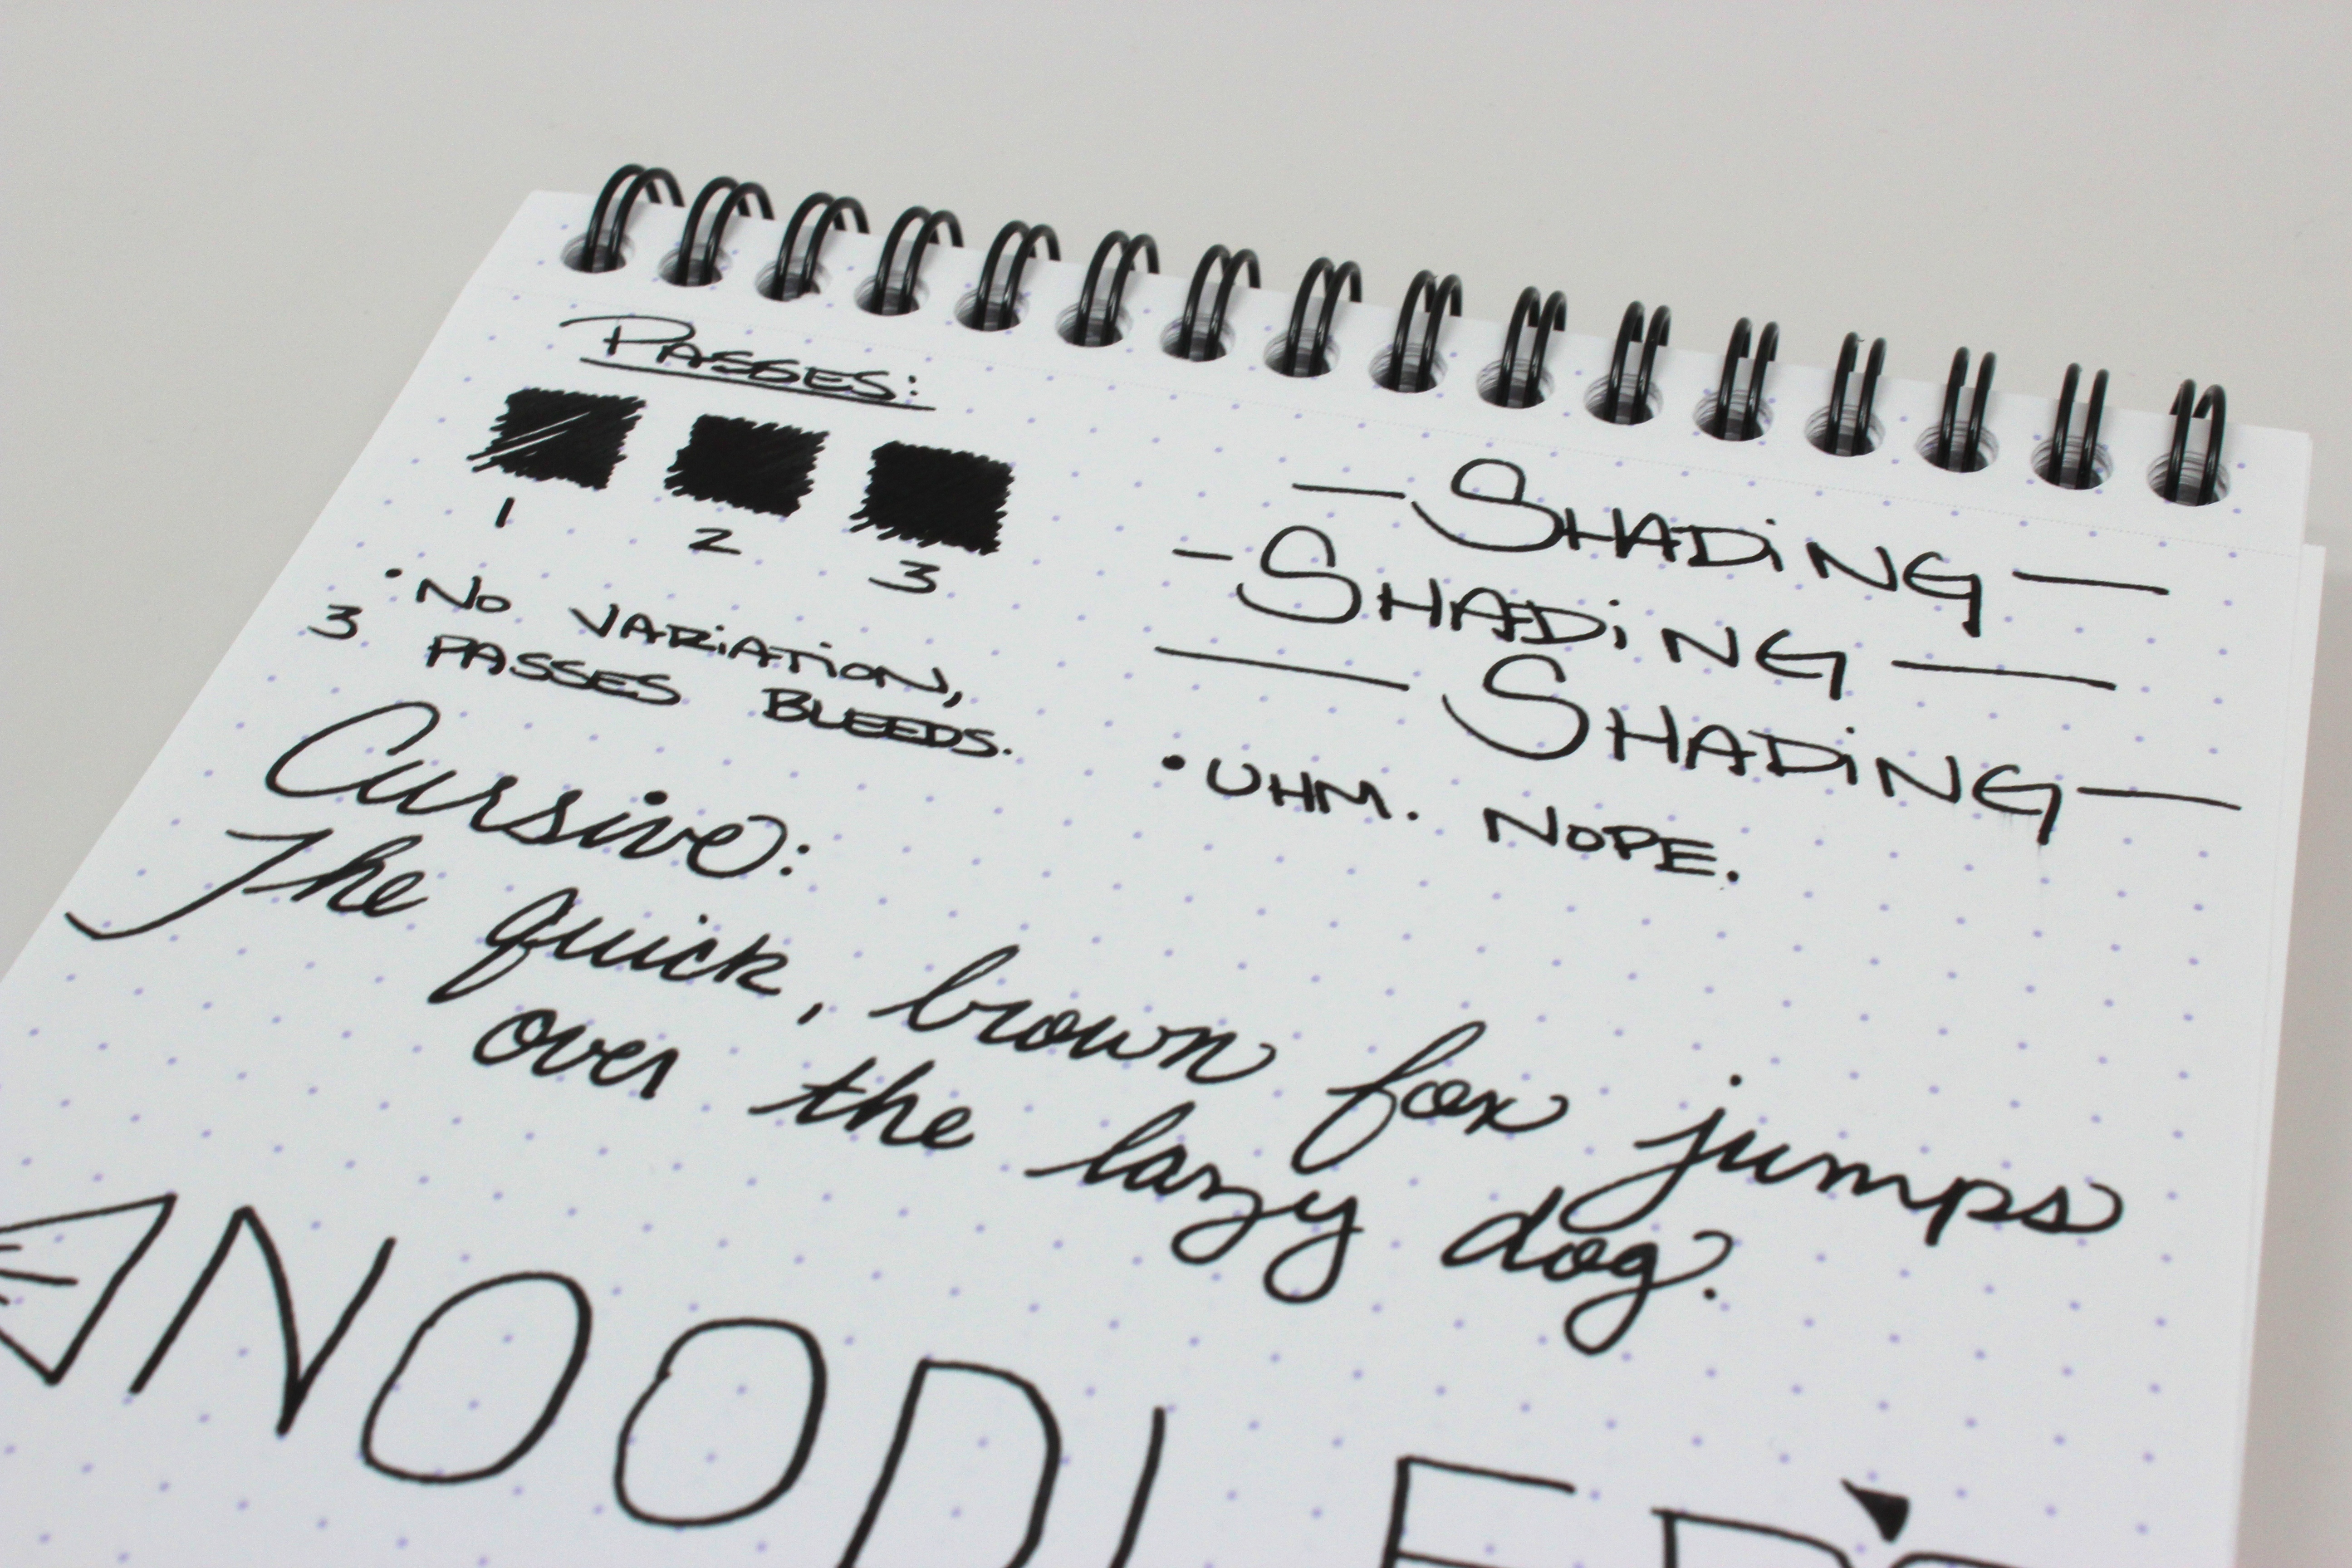 Passes:
1 2 3
• No variation,
3 passes bleeds.
— Shading —
— Shading —
— Shading —
• Uhm. Nope.
Cursive:
The quick, brown fox jumps
over the lazy dog.
NOODLER'S